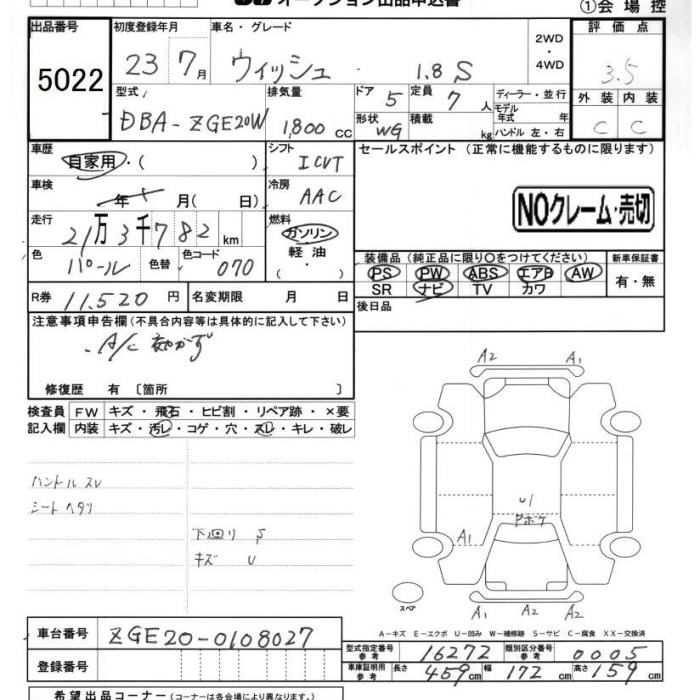 オークション出品申込書
①会場控
出品番号 初度登録年月 車名・グレード 2WD・4WD 評価点
5022 23 7月 ウィッシュ 1.8 S 3.5
型式 排気量 ドア 定員 ディーラー・並行 外装 内装
DBA-ZGE20W 1,800 cc 5 7人 モデル年式 年 C C
形状 積載 ハンドル 左・右
WG kg
車歴 シフト セールスポイント (正常に機能するものに限ります)
自家用・( ) ICVT
車検 冷房
年 月( 日) AAC
NOクレーム・売切
走行 燃料
21万3千782km ガソリン・軽油・( )
色 色替 色コード 装備品 (純正品に限り○をつけてください) 新車保証書
パール 070 PS PW ABS エアB AW 有・無
SR ナビ TV カワ
R券 11,520円 名変期限 月 日 後日品
注意事項申告欄 (不具合内容等は具体的に記入して下さい)
修復歴 有 〔箇所 〕
A2 A1
検査員 FW キズ・飛石・ヒビ割・リペア跡・×要
記入欄 内装 キズ・汚レ・コゲ・穴・スレ・キレ・破レ
ハンドルスレ
シートヘタリ
U1
Pボケ
下廻り S
キズ U
A1
スペア
A1 A2 A1
A-キズ E-エクボ U-凹み W-補修跡 S-サビ C-腐食 XX-交換済
車台番号 ZGE20-0108027
型式指定番号 参考 16272 類別区分番号 参考 0005
登録番号
車庫証明用 参考 長さ 459cm 幅 172cm 高さ 159cm
希望出品コーナー (コーナーは各会場により異なります。)